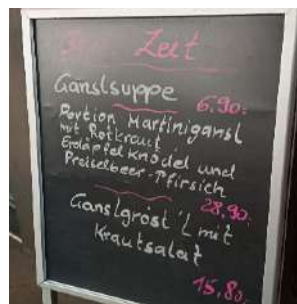 Zeit
Ganslsuppe
6,90.
Portion Martinigansl
mit Rotkraut,
Erdäpfelknödel und
Preiselbeer-Pfirsich
28,90.
Ganslgröst'l mit
Krautsalat
15,80